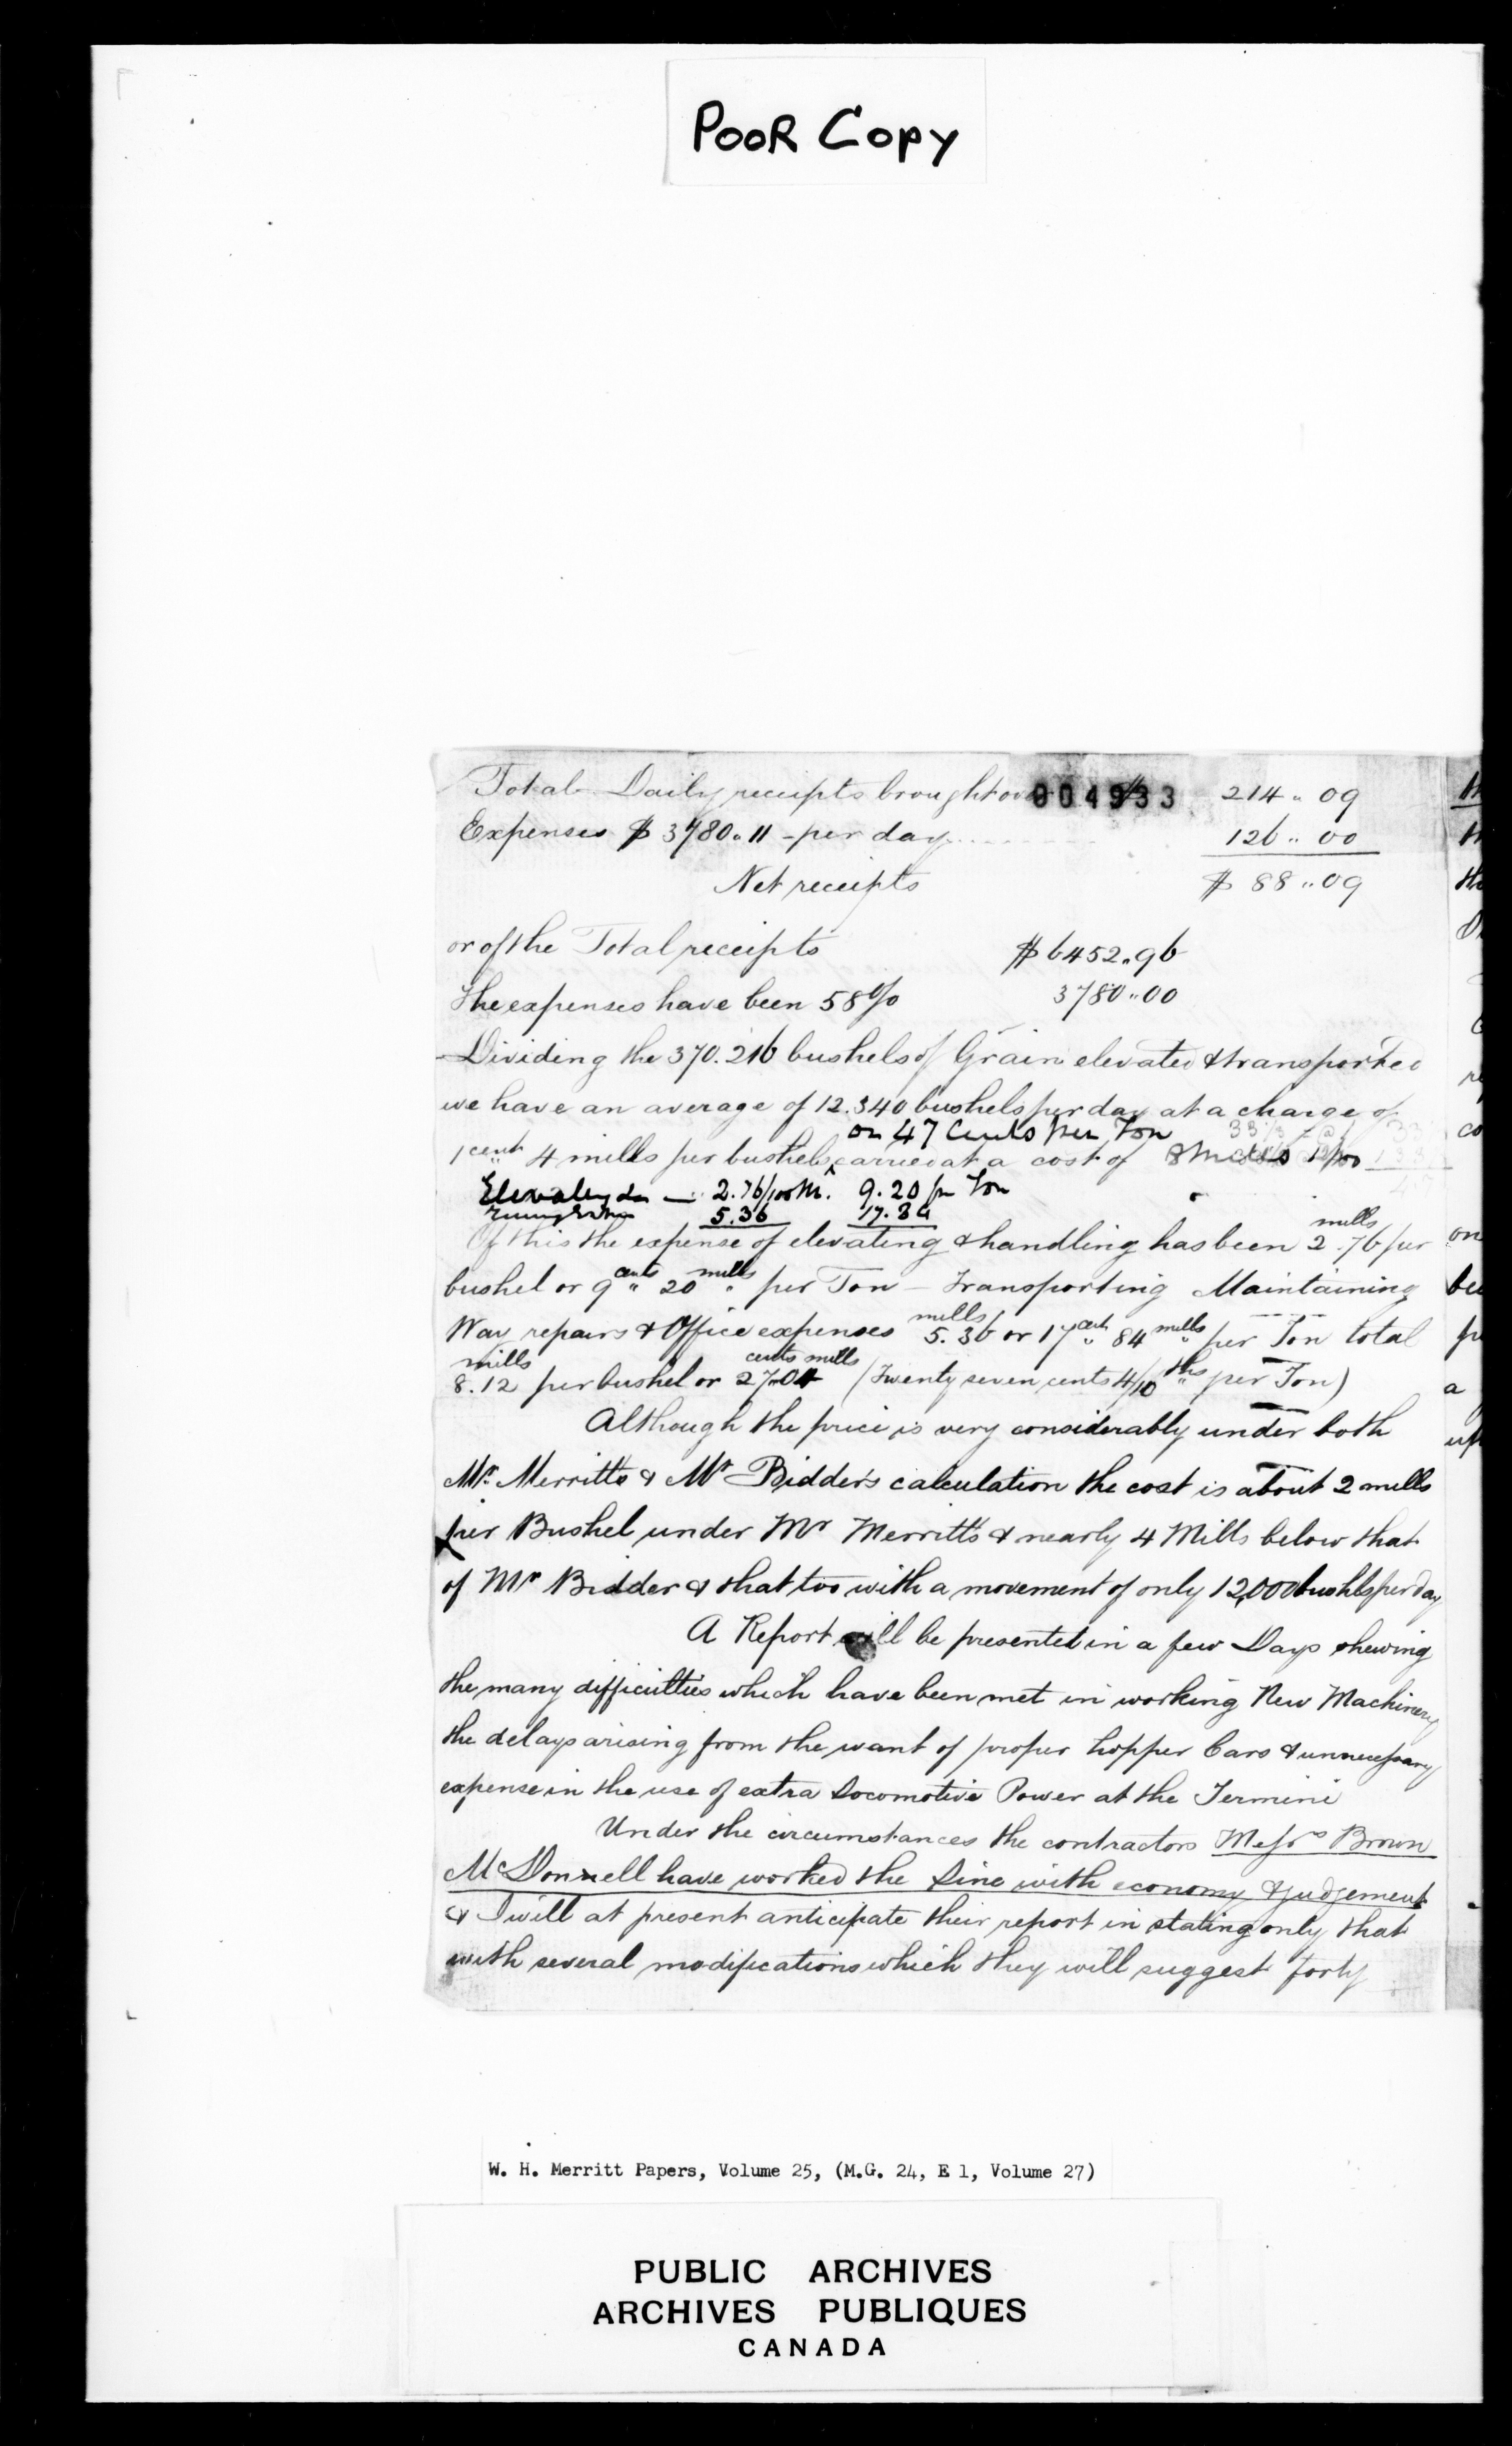 POOR COPY
Total Daily receipts brought over $ 214.. 09
004933
Expenses $ 3780.11 - per day 126.. 00
Net receipts $ 88..09
or of the Total receipts $ 6452.96
The expenses have been 58 % 3780..00
Dividing the 370.216 bushels of Grain elevated & transported
we have an average of 12.340 bushels per day at a charge of
or 47 Cents per Ton 33 1/3
1 cent 4 mills per bushels, carried at a cost of 8 Mills
Elevating do — 2.76/100 M. 9.20 pr Ton
5.36 17.84
Of this the expense of elevating & handling has been 2.76 mills per
bushel or 9 cents 20 mills per Ton - Transporting Maintaining
Way repairs & Office expenses 5.36 mills or 17 cents 84 mills per Ton total
8.12 mills per bushel or 27.04 cents mills (Twenty seven cents 4/10 ths per Ton)
Although the price is very considerably under both
Mr. Merritts & Mr Bidder's calculation the cost is about 2 mills
per Bushel under Mr Merritt's & nearly 4 Mills below that
of Mr Bidder & that too with a movement of only 12,000 bushls per day
A Report will be presented in a few Days shewing
the many difficulties which have been met in working New Machinery
the delays arising from the want of proper hopper Cars & unnecessary
expense in the use of extra Locomotive Power at the Termini
Under the circumstances the contractors Messrs Brown
McDonnell have worked the Line with economy & judgement
& I will at present anticipate their report in stating only that
with several modifications which they will suggest forty
W. H. Merritt Papers, Volume 25, (M.G. 24, E 1, Volume 27)
PUBLIC ARCHIVES
ARCHIVES PUBLIQUES
CANADA